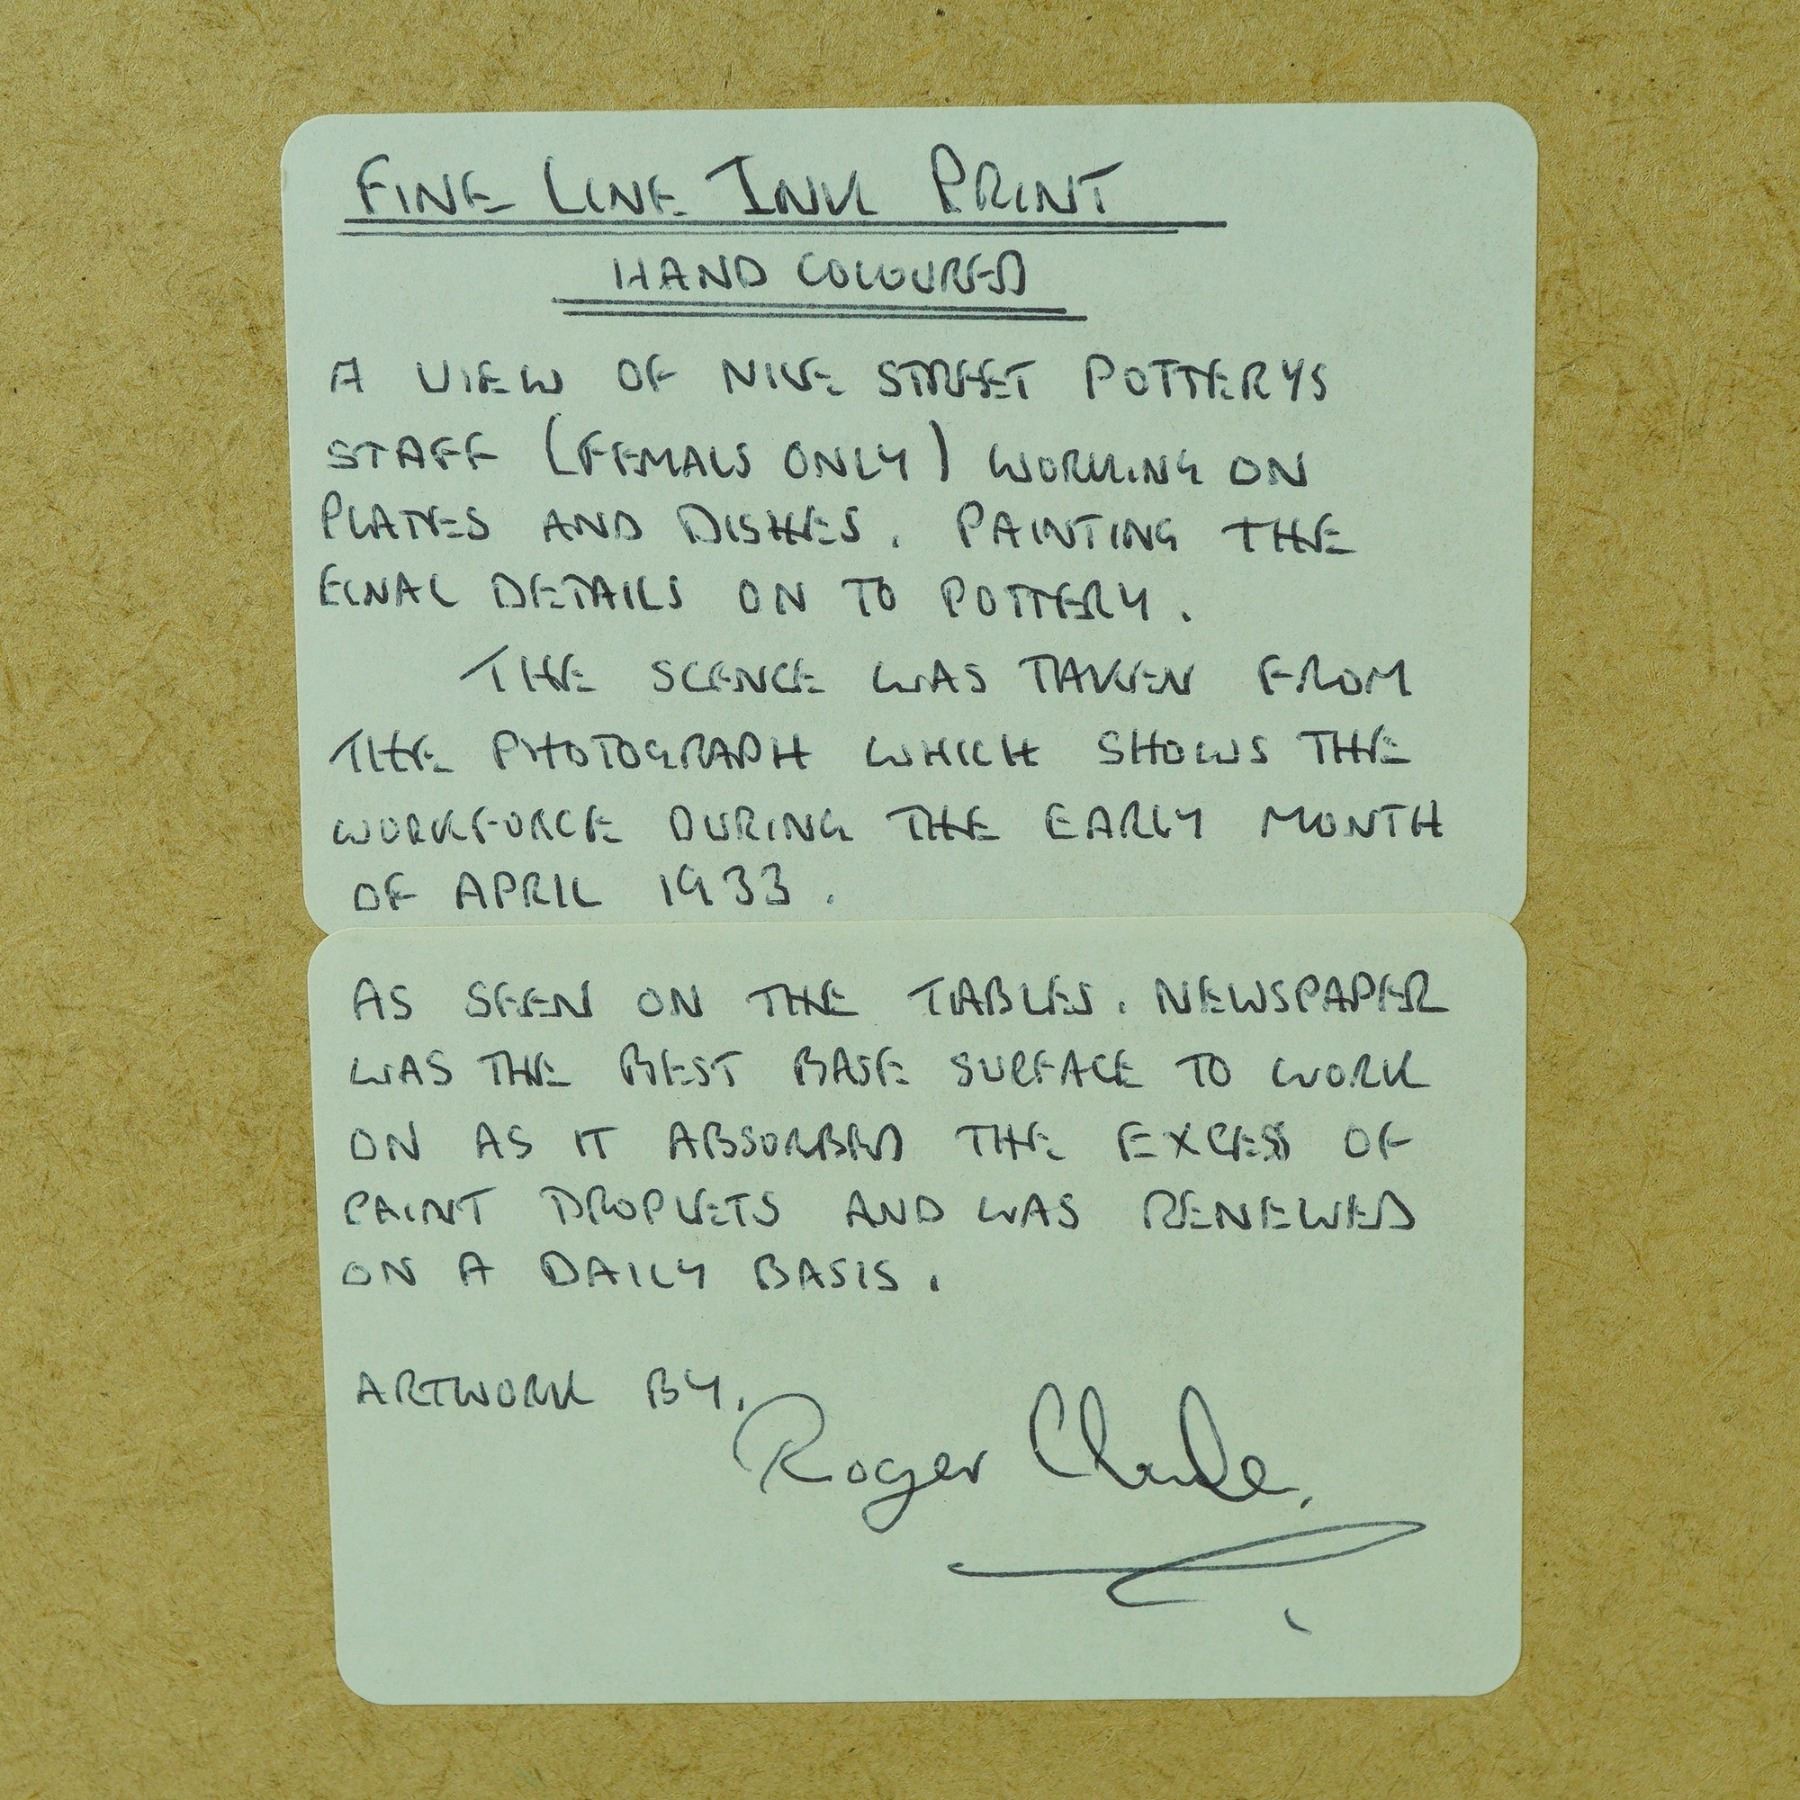 FINE LINE INK PRINT
HAND COLOURED
A VIEW OF NILE STREET POTTERYS
STAFF (FEMALS ONLY) WORKING ON
PLATES AND DISHES. PAINTING THE
FINAL DETAILS ON TO POTTERY.
THE SCENCE WAS TAKEN FROM
THE PHOTOGRAPH WHICH SHOWS THE
WORKFORCE DURING THE EARLY MONTH
OF APRIL 1933.
AS SEEN ON THE TABLES. NEWSPAPER
WAS THE BEST BASE SURFACE TO WORK
ON AS IT ABSORBED THE EXCESS OF
PAINT DROPLETS AND WAS RENEWED
ON A DAILY BASIS.
ARTWORK BY.
Roger